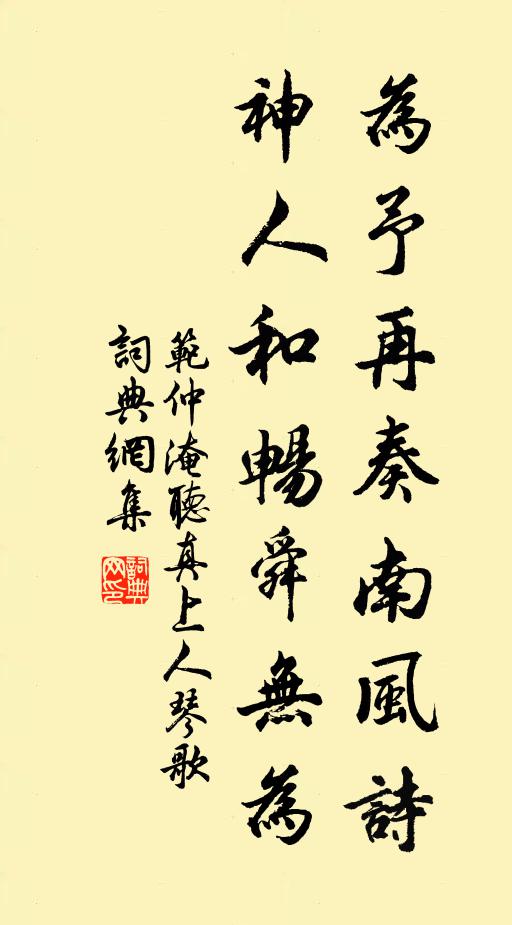 為予再奏南風詩
神人和暢舜無為
範仲淹聽真上人琴歌
詞典網集
詞典網印